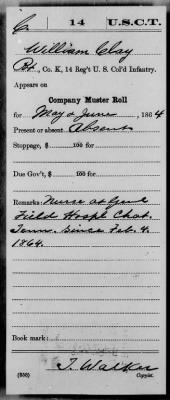 C | 14 | U.S.C.T.
William Clay
Pt., Co. K, 14 Reg't U. S. Col'd Infantry.
Appears on
Company Muster Roll
for May & June, 1864
Present or absent Absent
Stoppage, $ 100 for
Due Gov't, $ 100 for
Remarks: Nurse at Genl
Field Hospl Chat.
Tenn. since Feb. 4.
1864.
Book mark:
(858)
T. Walker
Copyist.